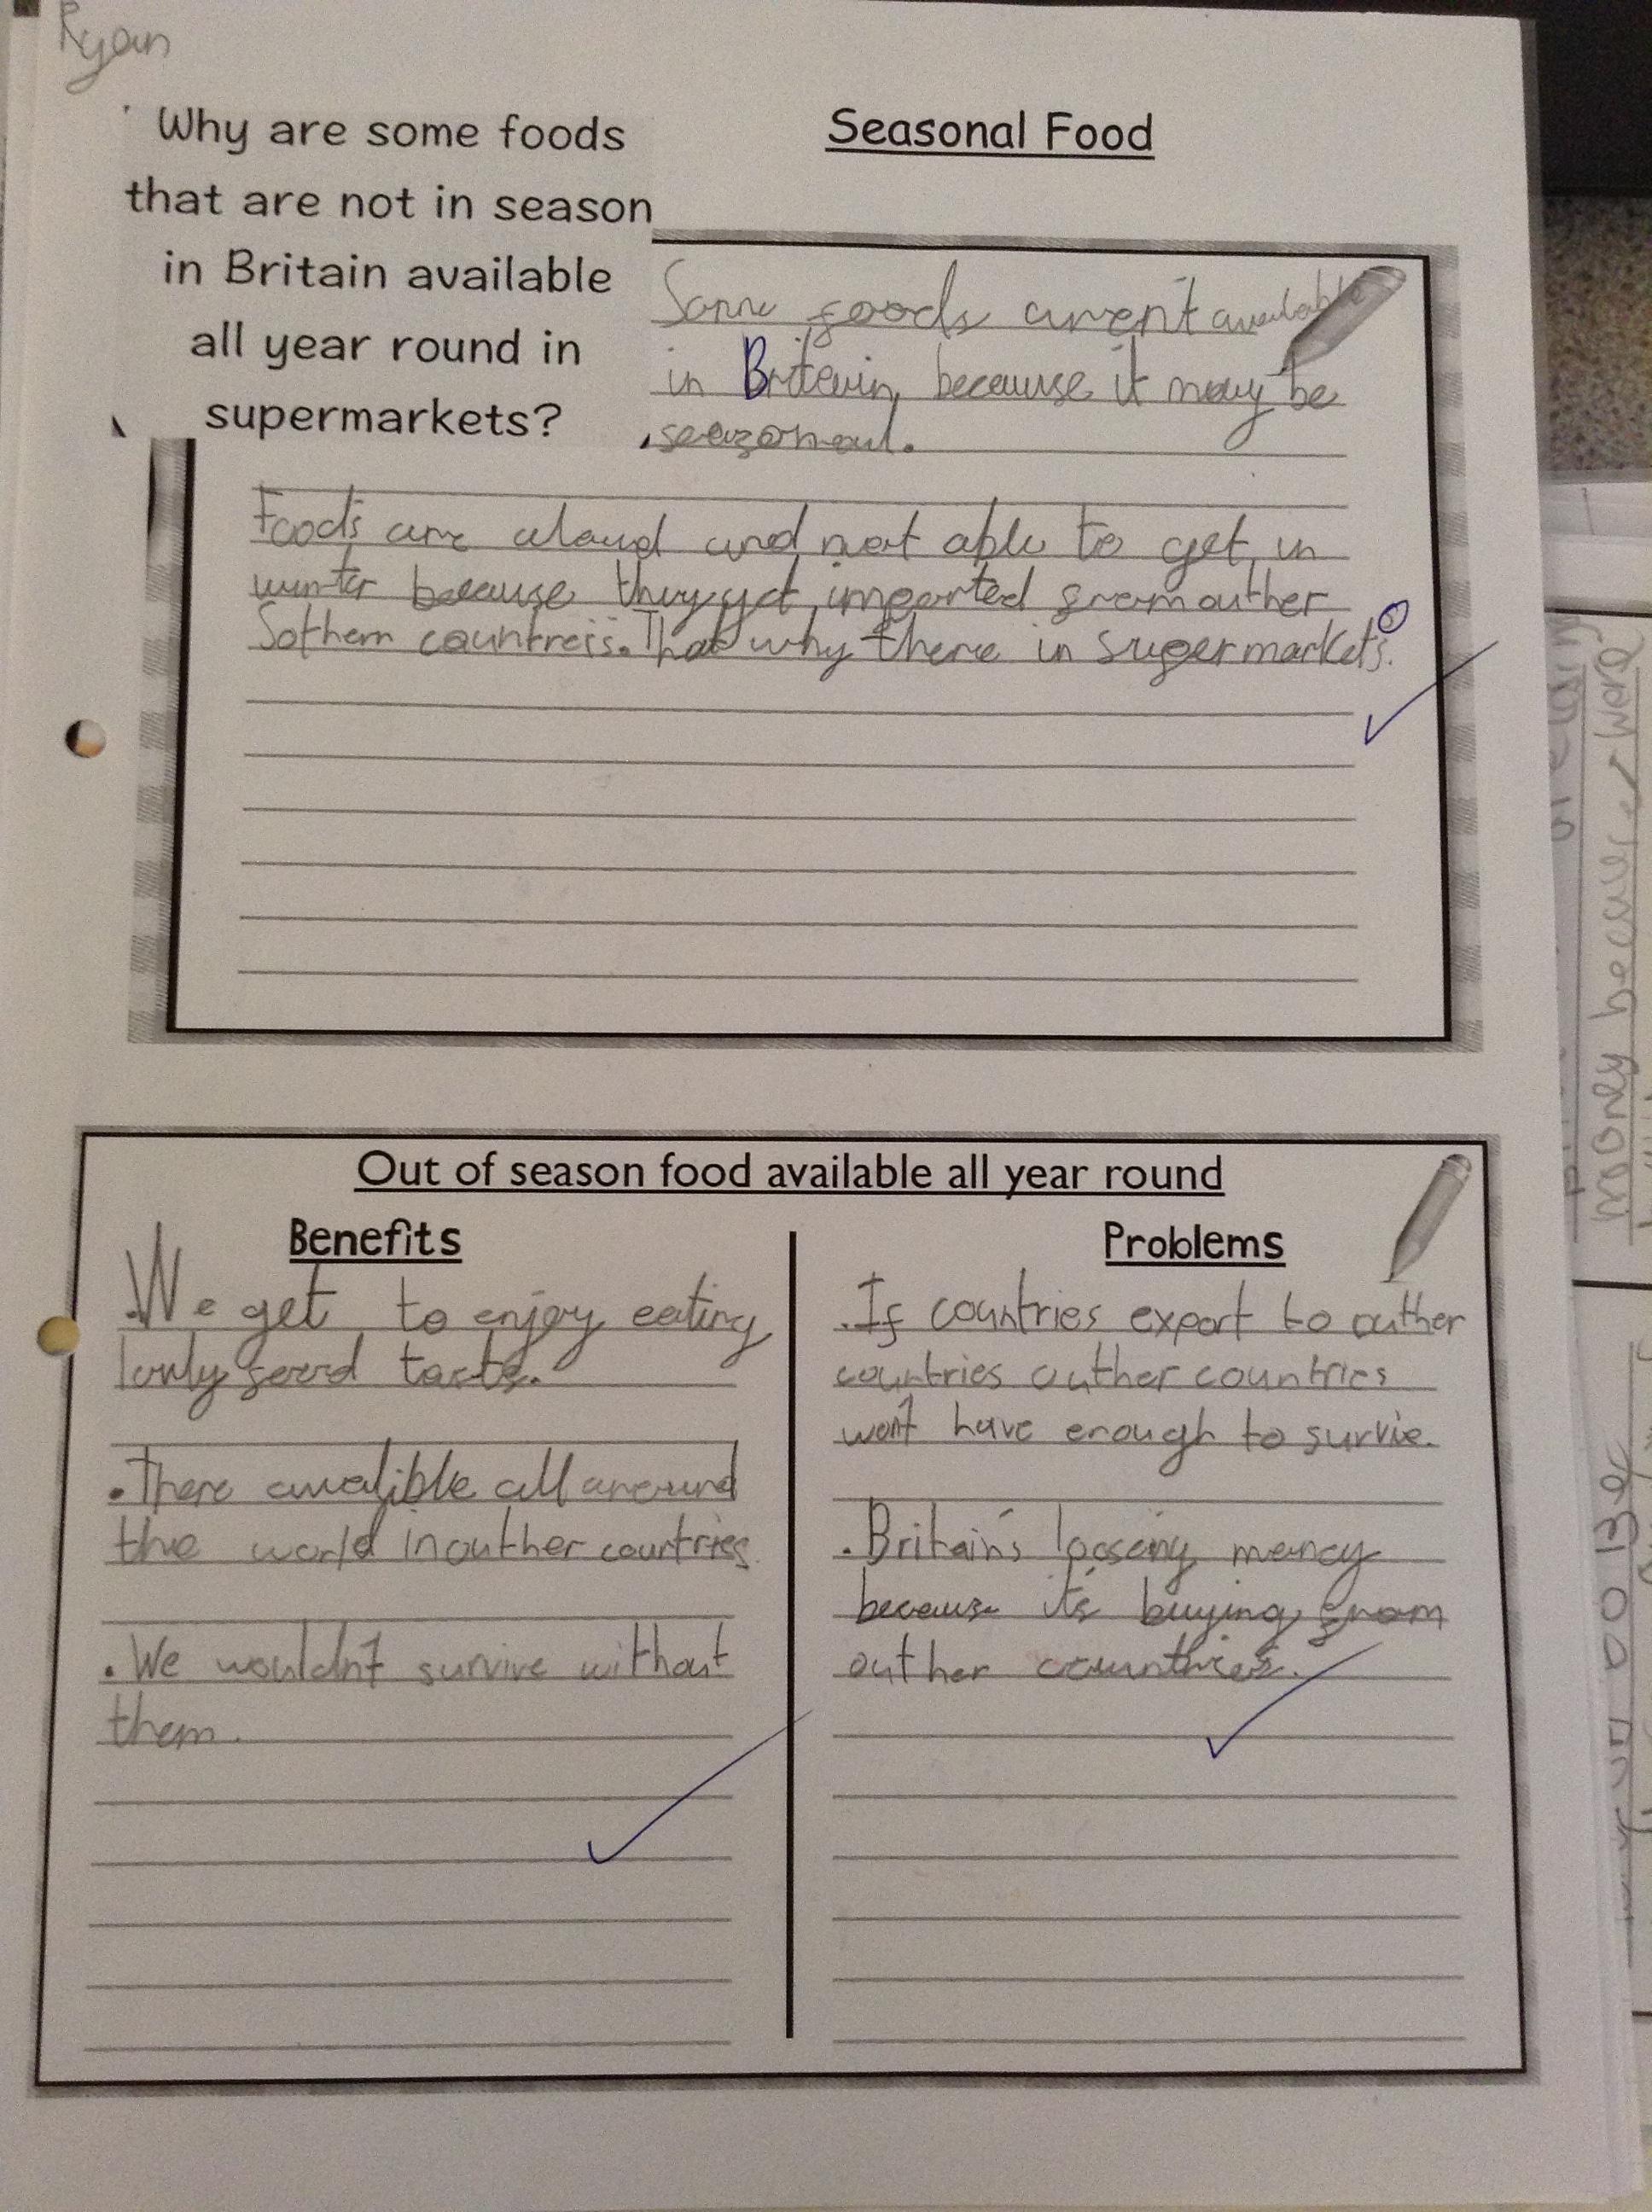 Ryan
Why are some foods
that are not in season
in Britain available
all year round in
supermarkets?
Seasonal Food
Some foods arent available
in Britain, because it may be
seasonal.
Foods are aloud and not able to get in
winter because they get imported from outher
Sothern countreis. That why there in supermarkets.
Out of season food available all year round
Benefits
. We get to enjoy eating
lovly food taste.
. There avalible all around
the world in outher countries.
. We wouldn't survive without
them.
Problems
. If countries export to outher
countries outher countries
won't have enough to survie.
. Britain's loosing money
because it's buying from
outher countries.
money because
were